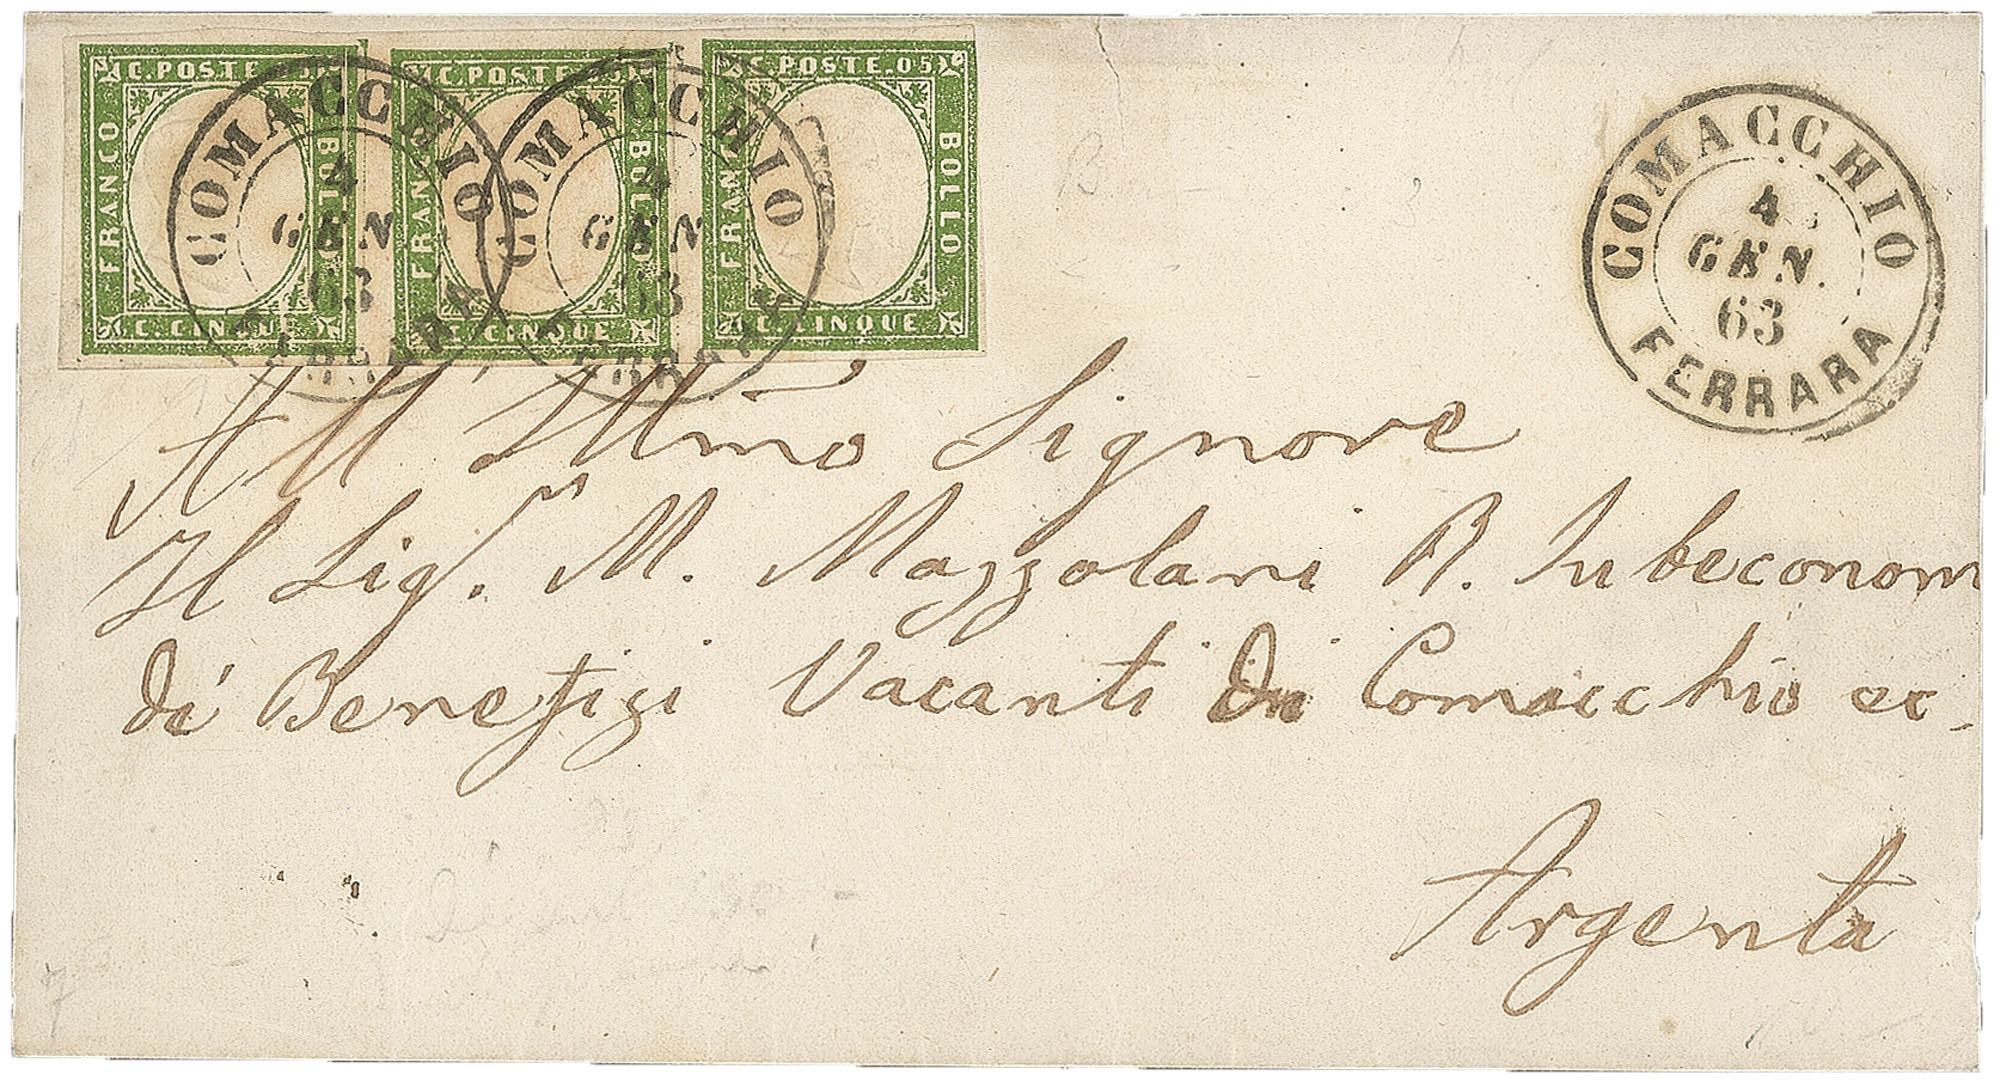 C. POSTE. 05
FRANCO
BOLLO
C. CINQUE
C. POSTE. 05
FRANCO
BOLLO
C. CINQUE
C. POSTE. 05
FRANCO
BOLLO
C. CINQUE
COMACCHIO
4
GEN
63
FERRARA
COMACCHIO
4
GEN
63
FERRARA
COMACCHIO
4
GEN.
63
FERRARA
All' Illmo Signore
Il Sigr. M. Mazzolani R. Subeconom
di Benefizi Vacanti Di Comacchio ec-
Argenta